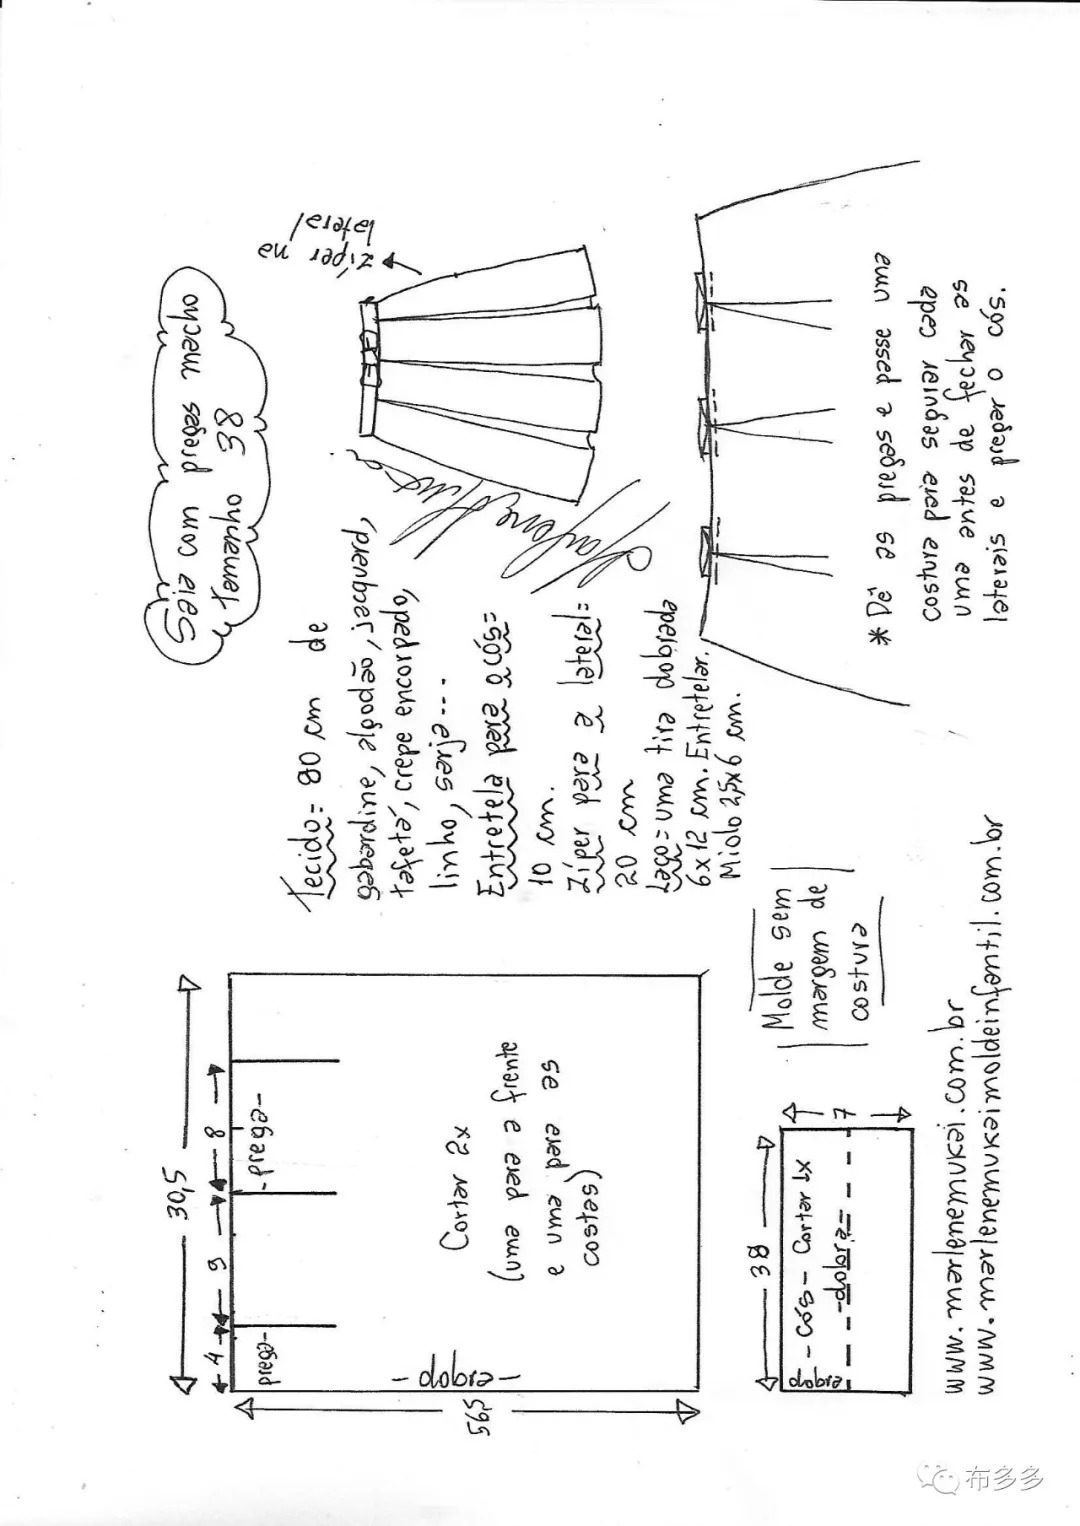 Saia com pregas macho
tamanho 38
Tecido= 80 cm de
gabardine, algodão, jacquard,
tafetá, crepe encorpado,
linho, sarja ...
Entretela para o cós=
10 cm.
Zíper para a lateral=
20 cm
Laço= uma tira dobrada
6x12 cm. Entretelar.
Miolo 2,5x6 cm.
zíper na
lateral
* Dê as pregas e passe uma
costura para segurar cada
uma antes de fechar as
laterais e pregar o cós.
30,5
4
9
8
prega-
-prega-
Cortar 2x
(uma para a frente
e uma para as
costas)
- dobra -
56,5
Molde sem
margem de
costura
38
7
- Cós - Cortar 1x
-dobra-
dobra
www.marlenemukai.com.br
www.marlenemukaimoldeinfantil.com.br
布多多